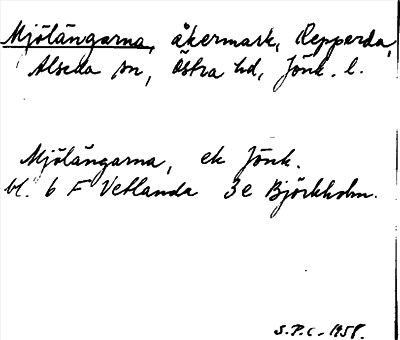 Mjölängarna, åkermark, Repperda,
Alseda sn, Östra hd, Jönk. l.
Mjölängarna, ek Jönk.
bl. 6 F Vetlanda 3e Björkholm.
S.P.C. - 1958.